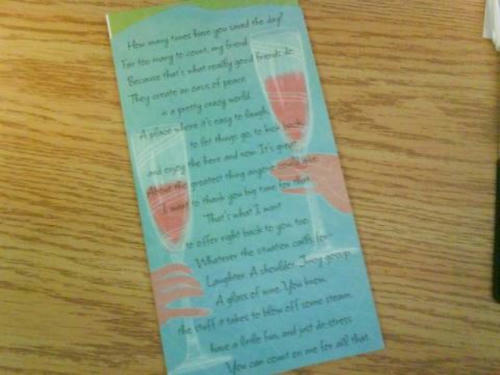 How many times have you saved the day?
Far too many to count, my friend.
Because that's what really good friends do.
They create an oasis of peace
in a pretty crazy world.
A place where it's easy to laugh,
to let things go, to kick back,
and enjoy the here and now. It's great.
About the greatest thing anyone could give.
I want to thank you big time for that.
That's what I want
to offer right back to you too.
Whatever the situation calls for.
Laughter. A shoulder. Juicy gossip.
A glass of wine. You know,
the stuff it takes to blow off some steam,
have a little fun, and just de-stress.
You can count on me for all that.